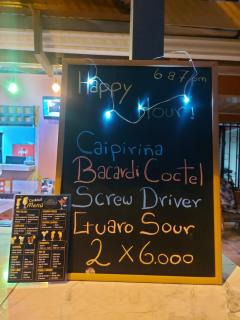 6 a 7 pm
Happy
Hour!
Caipiriña
Bacardi Coctel
Screw Driver
Guaro Sour
2 x 6.000
Cocktail
Menu